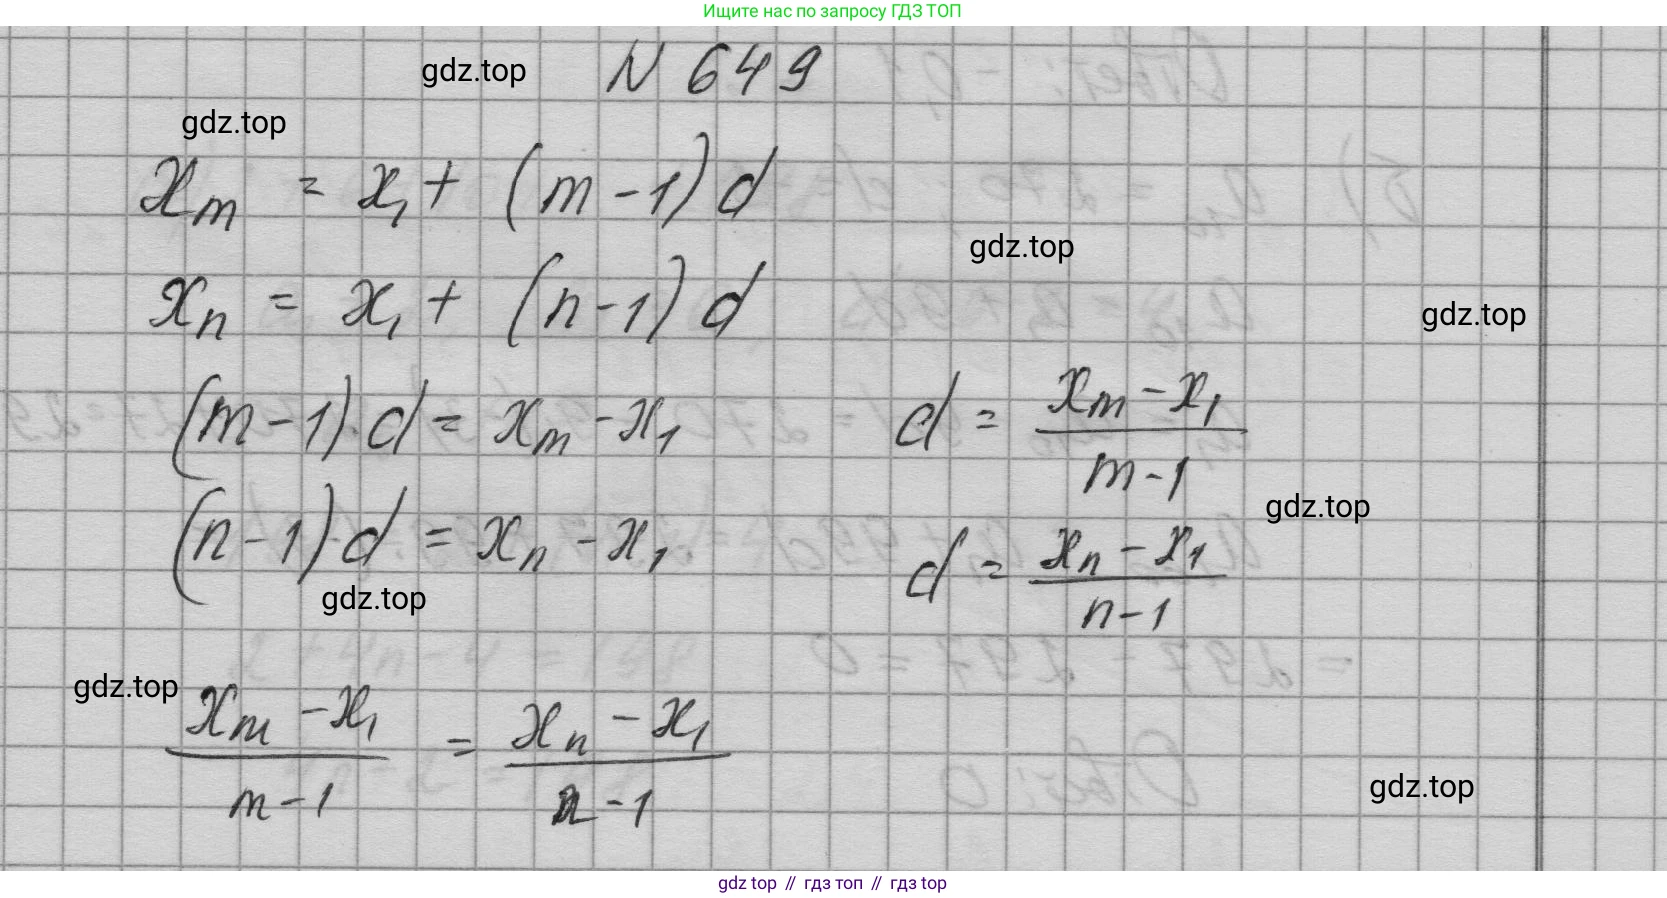 Ищите нас по запросу ГДЗ ТОП
N 649
gdz.top
gdz.top
xₘ = x₁ + (m - 1) d
gdz.top
xₙ = x₁ + (n - 1) d
gdz.top
(m - 1) d = xₘ - x₁ d = (xₘ - x₁)/(m - 1)
gdz.top
(n - 1) d = xₙ - x₁ d = (xₙ - x₁)/(n - 1)
gdz.top
gdz.top
(xₘ - x₁)/(m - 1) = (xₙ - x₁)/(n - 1)
gdz.top
gdz top // гдз топ // gdz top